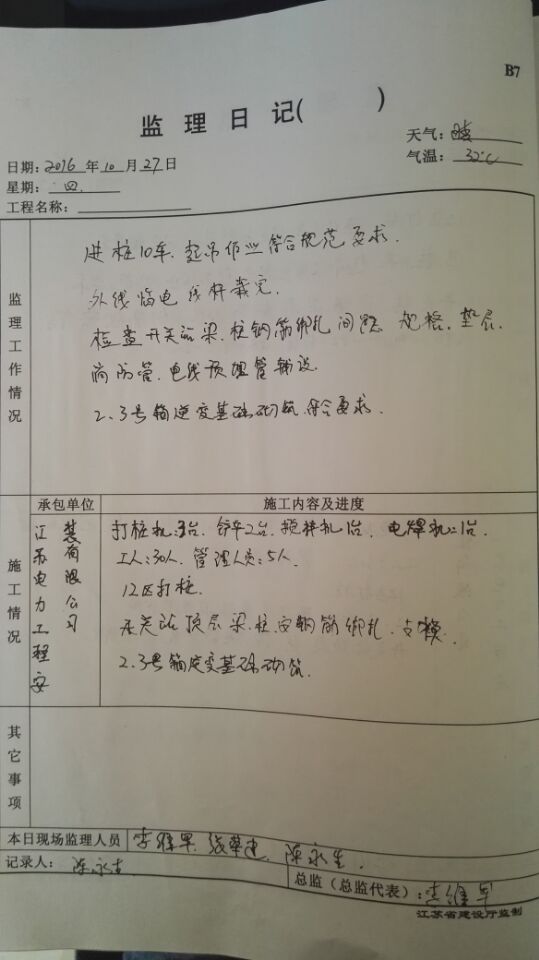 B7
监 理 日 记(          )
天气:
日期: 2016 年 10 月 27 日
气温: 32℃
星期: 四.
工程名称:
监理工作情况
进桩10车.起吊作业符合规范要求.
外线临电线杆栽完.
检查开关站梁.柱钢筋绑扎间距 规格.垫层.
电线预埋管铺设.
2.3号箱逆变基础砌筑.符合要求.
承包单位
施工内容及进度
施工情况
江苏电力工程安
装有限公司
打桩机:3台.铲车2台.搅拌机1台.电焊机:1台.
工人:30人.管理人员:5人.
12区打桩.
开关站顶层梁.柱.钢筋绑扎.支模.
2.3号箱逆变基础砌筑.
其它事项
本日现场监理人员
李维军. 陈永生.
记录人: 陈永生
总监（总监代表）: 李维军
江苏省建设厅监制